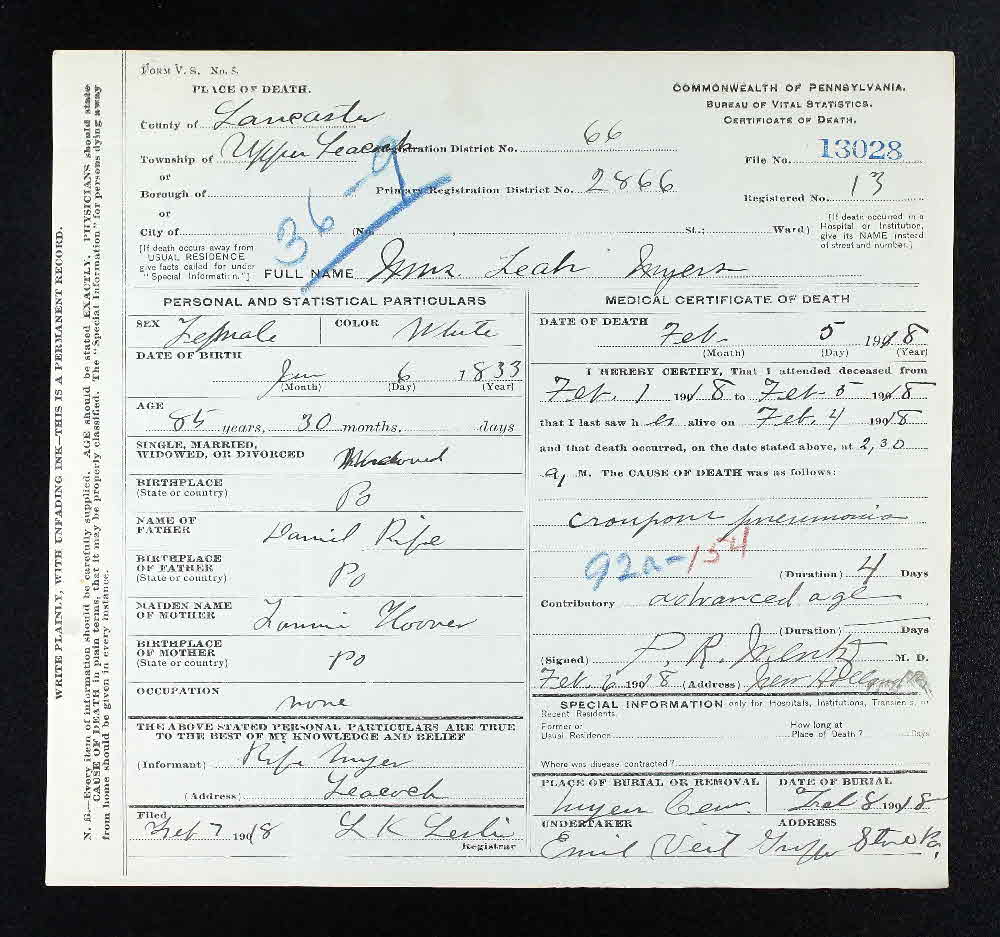 FORM V. S. No. 5.
PLACE OF DEATH.
County of Lancaster
Township of Upper Leacock
or
Borough of
or
City of
[If death occurs away from
USUAL RESIDENCE
give facts called for under
"Special Information."]
36-9
Registration District No. 66
Primary Registration District No. 2866
(No. , St.; Ward)
COMMONWEALTH OF PENNSYLVANIA.
BUREAU OF VITAL STATISTICS.
CERTIFICATE OF DEATH.
File No. 13028
Registered No. 13
[If death occurred in a
Hospital or Institution,
give its NAME instead
of street and number.]
FULL NAME Mrs. Leah Myers
PERSONAL AND STATISTICAL PARTICULARS
SEX Female COLOR White
DATE OF BIRTH
Jan 6 1833
(Month) (Day) (Year)
AGE
85 years, 30 months, days
SINGLE, MARRIED,
WIDOWED, OR DIVORCED Widowed
BIRTHPLACE
(State or country) Pa
NAME OF
FATHER Daniel Rife
BIRTHPLACE
OF FATHER
(State or country) Pa
MAIDEN NAME
OF MOTHER Hoover
BIRTHPLACE
OF MOTHER
(State or country) Pa
OCCUPATION
none
THE ABOVE STATED PERSONAL PARTICULARS ARE TRUE
TO THE BEST OF MY KNOWLEDGE AND BELIEF
(Informant) Rife Myer
(Address) Leacock
Filed
Feb 7 1918 L K Leslie
Registrar
MEDICAL CERTIFICATE OF DEATH
DATE OF DEATH
Feb. 5 1918
(Month) (Day) (Year)
I HEREBY CERTIFY, That I attended deceased from
Feb. 1 1918 to Feb. 5 1918
that I last saw her alive on Feb. 4 1918
and that death occurred, on the date stated above, at 2,30
a, M. The CAUSE OF DEATH was as follows:
croupous pneumonia
92a-154
(Duration) 4 Days
Contributory advanced age
(Duration) Days
(Signed) R. M. D.
Feb. 6 1908 (Address) New Holland
SPECIAL INFORMATION only for Hospitals, Institutions, Transients, or
Recent Residents.
Former or
Usual Residence
How long at
Place of Death? Days
Where was disease contracted?
PLACE OF BURIAL OR REMOVAL DATE OF BURIAL
Myer Cem. Feb 8 1918
UNDERTAKER ADDRESS
Emil Veit Pa.
WRITE PLAINLY, WITH UNFADING INK—THIS IS A PERMANENT RECORD.
N. B.—Every item of information should be carefully supplied. AGE should be stated EXACTLY. PHYSICIANS should state
CAUSE OF DEATH in plain terms, that it may be properly classified. The "Special Information" for persons dying away
from home should be given in every instance.